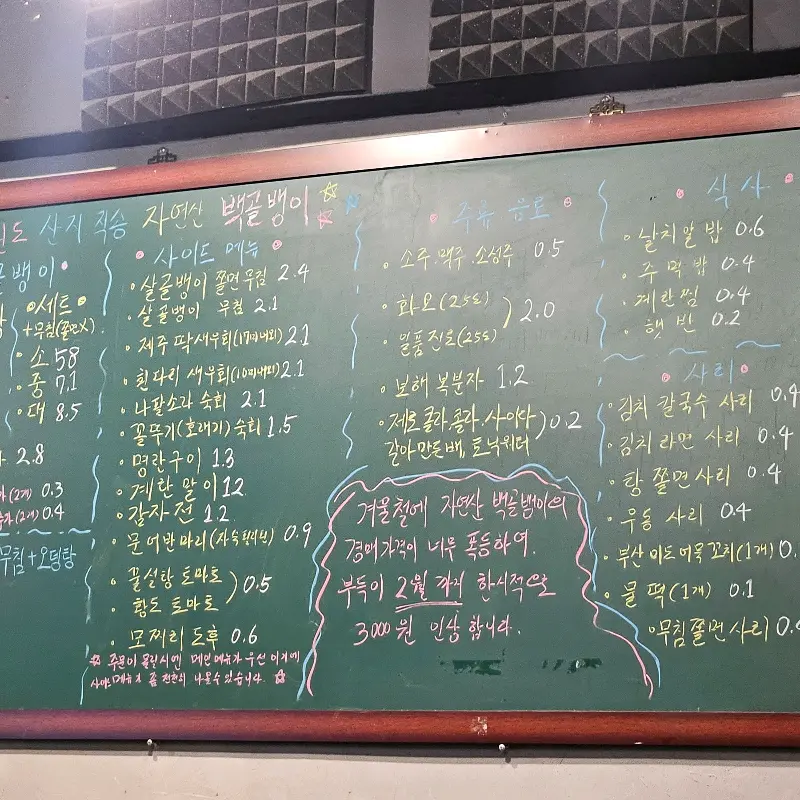 산지 직송 자연산 백골뱅이
골뱅이
세트
+무침(쫄면X)
소 58
중 7.1
대 8.5
2.8
(2개) 0.3
(2개) 0.4
무침+오뎅탕
사이드 메뉴
살골뱅이 쫄면무침 2.4
살골뱅이 무침 2.1
제주 딱새우회(17미내외) 2.1
흰다리 새우회(10미내외) 2.1
나팔소라 숙회 2.1
꼴뚜기(호래기) 숙회 1.5
명란구이 1.3
계란말이 12
감자전 1.2
문어반마리(자숙) 0.9
꿀설탕 토마토
황도 토마토
0.5
모찌리 도후 0.6
주문이 몰릴시엔 메인메뉴가 우선이기에
사이드메뉴가 좀 천천히 나올수 있습니다.
주류 음료
소주.맥주.소성주 0.5
화요(25도)
일품진로(25도)
2.0
보해 복분자 1.2
제로콜라.콜라.사이다
갈아만든배, 토닉워터
0.2
겨울철에 자연산 백골뱅이의
경매가격이 너무 폭등하여.
부득이 2월까지 한시적으로
3000원 인상합니다.
식사
날치알밥 0.6
주먹밥 0.4
계란찜 0.4
햇반 0.2
사리
김치 칼국수 사리 0.4
김치라면 사리 0.4
탕 쫄면사리 0.4
우동 사리 0.4
부산미도어묵꼬치(1개) 0.
물떡(1개) 0.1
무침쫄면사리 0.